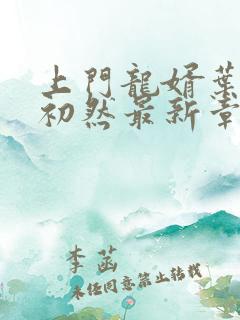 上門龍婿葉
初然最新章
李菡
未经同意禁止转载